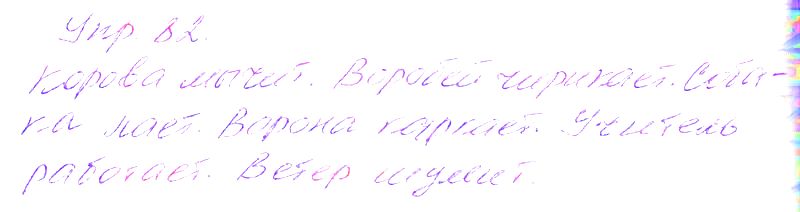 Упр 82.
Корова мычит. Воробей чирикает. Соба-
ка лает. Ворона каркает. Учитель
работает. Ветер шумит.